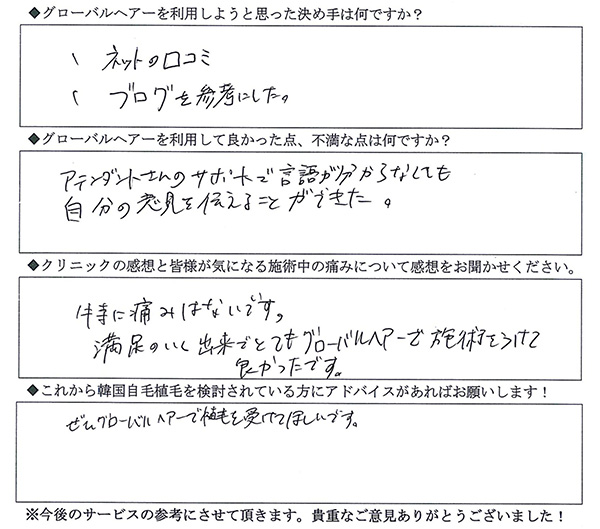 ◆グローバルヘアーを利用しようと思った決め手は何ですか？
、ネットの口コミ
、ブログを参考にした。
◆グローバルヘアーを利用して良かった点、不満な点は何ですか？
アテンダントさんのサポートで言語が分からなくても
自分の意見を伝えることができた。
◆クリニックの感想と皆様が気になる施術中の痛みについて感想をお聞かせください。
特に痛みはないです。
満足のいく出来でとてもグローバルヘアーで施術をうけて
良かったです。
◆これから韓国自毛植毛を検討されている方にアドバイスがあればお願いします！
ぜひグローバルヘアーで植毛を受けてほしいです。
※今後のサービスの参考にさせて頂きます。貴重なご意見ありがとうございました！